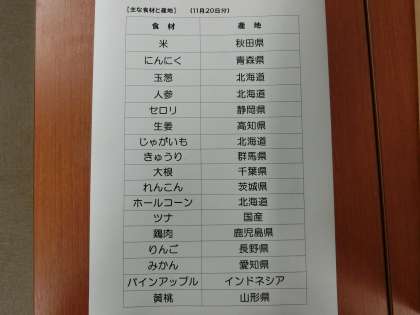 【主な食材と産地】 (11月20日分)
食 材 産 地
米 秋田県
にんにく 青森県
玉葱 北海道
人参 北海道
セロリ 静岡県
生姜 高知県
じゃがいも 北海道
きゅうり 群馬県
大根 千葉県
れんこん 茨城県
ホールコーン 北海道
ツナ 国産
鶏肉 鹿児島県
りんご 長野県
みかん 愛知県
パインアップル インドネシア
黄桃 山形県